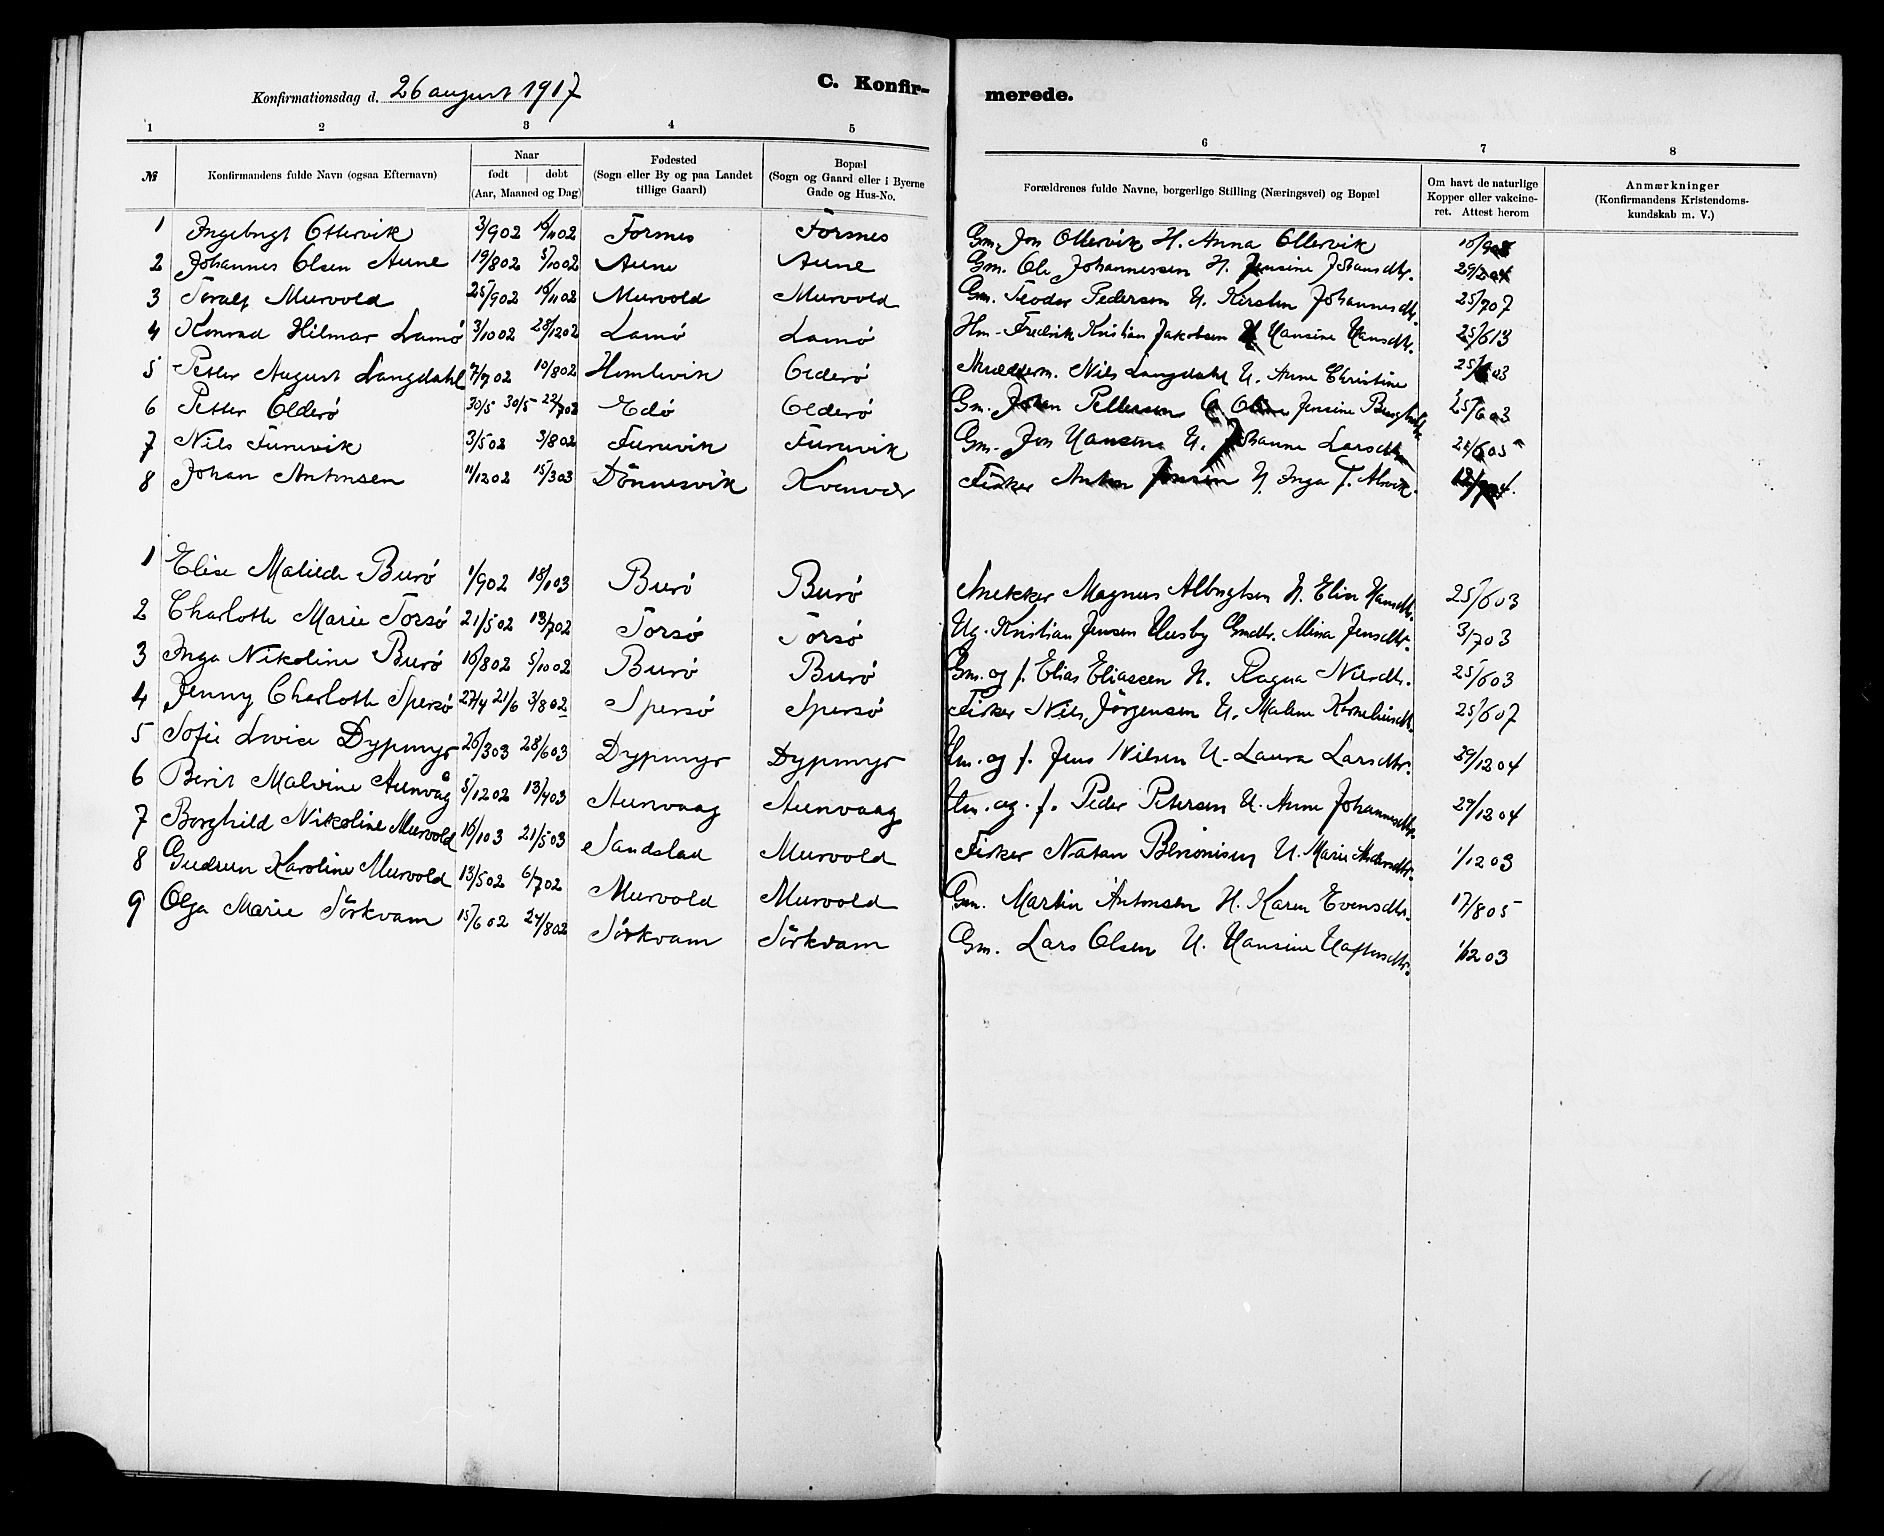 C. Konfir-
merede.
Konfirmationsdag d. 26 august 1917
1 2 3 4 5 6 7 8
№ Konfirmandens fulde Navn (ogsaa Efternavn) Naar født døbt (Aar, Maaned og Dag) Fødested (Sogn eller By og paa Landet tillige Gaard) Bopæl (Sogn og Gaard eller i Byerne Gade og Hus-No. Forældrenes fulde Navne, borgerlige Stilling (Næringsvei) og Bopæl Om havt de naturlige Kopper eller vakcine-ret. Attest herom Anmærkninger (Konfirmandens Kristendoms-kundskab m. V.)
1 Ingebrigt Ottervik 3/902 16/1102 Forsnes Forsnes Gm. Jon Ottervik H. Anna Ottervik
2 Johannes Olsen Aune 19/802 5/1002 Aune Aune Gm. Ole Johannessen H. Jensine Johansdtr.
3 Toralf Murvold 25/902 16/1102 Murvold Murvold Gm. Teodor Pedersen H. Kirsten Johannesdtr. 25/707
4 Konrad Hilmar Lamø 3/1002 28/1202 Lamø Lamø Hm. Fredrik Kristian Jakobsen H Hansine Hansdtr. 25/613
5 Petter August Langdahl 7/702 10/802 Hemlevik Olderø Nils Langdahl H. Anne Christine
6 Petter Olderø 30/5 30/5 22/702 Edø Olderø Gm. Johan Pettersen Jensine 25/603
7 Nils Furuvik 3/502 3/802 Furuvik Furuvik Gm. Jon Hansen H. Johanne Larsdtr.
8 Johan Antonsen 11/1202 15/303 Dönnesvik Kvenvær Fisker Anton Jensen H. Inga T. Alvik.
1 Elise Matilde Burø 1/902 18/103 Burø Burø Snekker Magnus Albrigtsen H. Elin Hansdtr. 25/603
2 Charlotte Marie Torsø 21/502 13/702 Torsø Torsø Ug. Kristian Jensen Husby Gmdtr. Mina Jensdtr. 3/703
3 Inga Nikoline Burø 16/802 5/1002 Burø Burø Gm. og f. Elias Eliassen H. Ragna Nilsdtr. 25/603
4 Jenny Charlotte Spersø 27/4 21/6 3/802 Spersø Spersø Fisker Nils Jörgensen H. Malene Korneliusdtr. 25/607
5 Sofie Lovise Dypmyr 26/303 28/603 Dypmyr Dypmyr Hm. og f. Jens Nilsen H. Laura Larsdtr. 29/1204
6 Berit Malvine Aunvåg 5/1202 13/403 Aunvaag Aunvaag Hm. og f. Peder Petersen H. Anne Johannesdtr. 29/1204
7 Borghild Nikoline Murvold 16/103 21/503 Sandstad Murvold Fisker Natan H. Marie Andersdtr. 1/1203
8 Gudrun Karoline Murvold 13/502 6/702 Murvold Murvold Gm. Martin Antonsen H. Karen Evensdtr. 17/805
9 Olga Marie Sörkvam 15/602 24/802 Sörkvam Sörkvam Gm. Lars Olsen H. Hansine Haftorsdtr. 1/1203